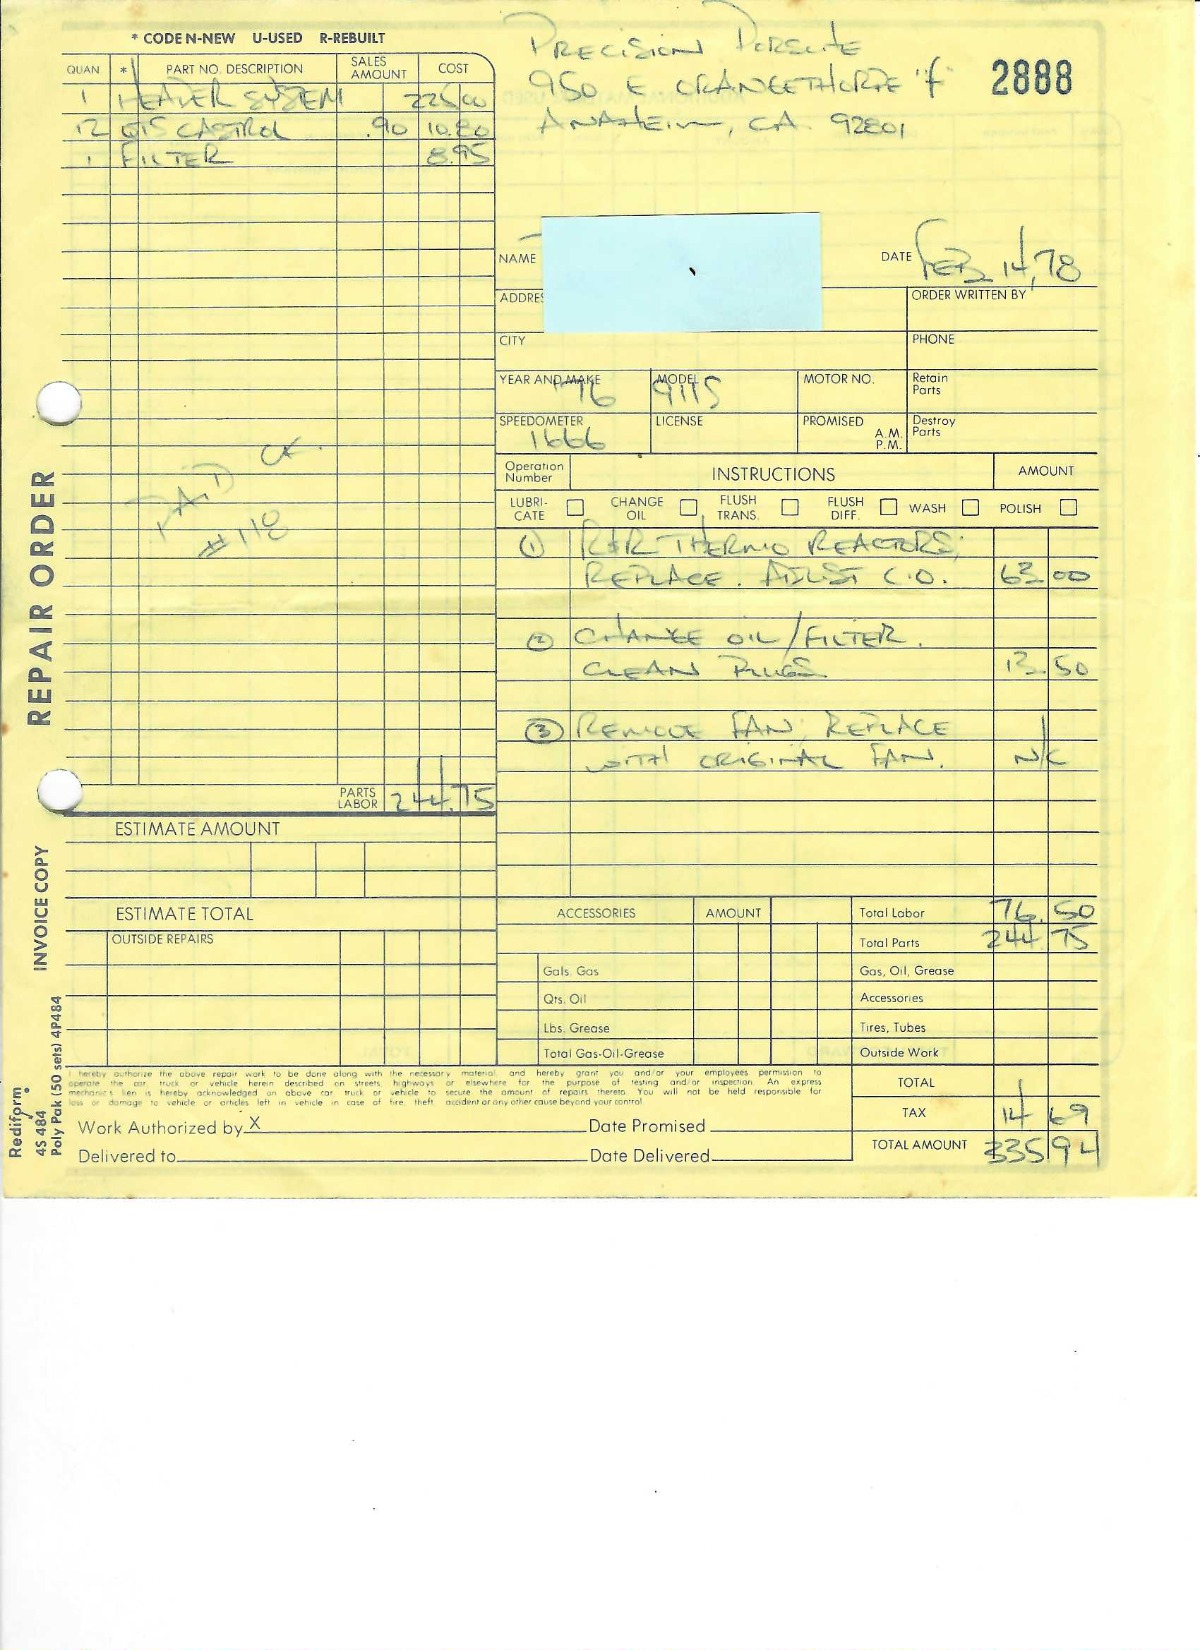 * CODE N-NEW U-USED R-REBUILT
QUAN * PART NO. DESCRIPTION SALES AMOUNT COST
1 HEATER SYSTEM 225 00
12 QTS CASTROL .90 10.80
1 FILTER 8.95
PRECISION PORSCHE
950 E ORANGETHORPE "f"
ANAHEIM, CA 92801
2888
NAME
DATE FEB 14, 78
ADDRE
ORDER WRITTEN BY
CITY
PHONE
YEAR AND MAKE 76
MODEL 911S
MOTOR NO.
Retain Parts
SPEEDOMETER 1666
LICENSE
PROMISED A.M. P.M.
Destroy Parts
PAID CK.
#118
Operation Number INSTRUCTIONS AMOUNT
LUBRI-CATE CHANGE OIL FLUSH TRANS. FLUSH DIFF. WASH POLISH
(1) R&R THERMO REACTORS,
REPLACE. ADJUST C.O. 63 00
(2) CHANGE OIL/FILTER.
CLEAN PLUGS. 13.50
(3) REMOVE FAN, REPLACE
WITH ORIGINAL FAN. N/C
PARTS LABOR 244.75
ESTIMATE AMOUNT
ESTIMATE TOTAL
OUTSIDE REPAIRS
ACCESSORIES AMOUNT
Gals. Gas
Qts. Oil
Lbs. Grease
Total Gas-Oil-Grease
Total Labor 76.50
Total Parts 244.75
Gas, Oil, Grease
Accessories
Tires, Tubes
Outside Work
TOTAL
TAX 14 69
TOTAL AMOUNT 335 94
I hereby authorize the above repair work to be done along with the necessary material, and hereby grant you and/or your employees permission to
operate the car truck or vehicle herein described on streets, highways or elsewhere for the purpose of testing and/or inspection. An express
mechanic's lien is hereby acknowledged on above car truck or vehicle to secure the amount of repairs thereto. You will not be held responsible for
loss or damage to vehicle or articles left in vehicle in case of fire, theft, accident or any other cause beyond your control.
Work Authorized by X Date Promised
Delivered to Date Delivered
REPAIR ORDER
INVOICE COPY
Rediform
4S 484
Poly Pak (50 sets) 4P484